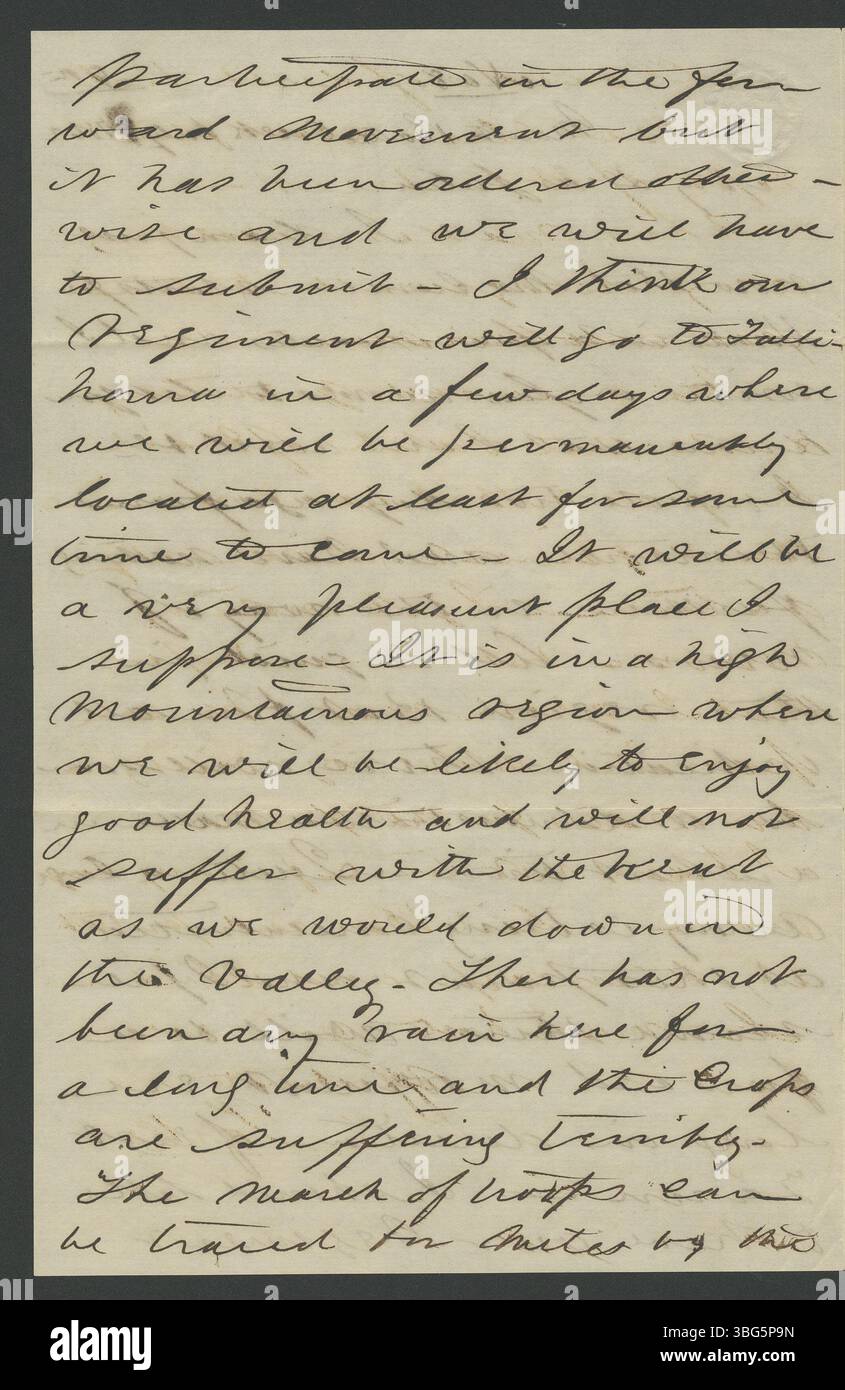 participate in the for-
ward movement but
it has been ordered other-
wise and we will have
to submit - I think our
regiment will go to Tulli-
homa in a few days where
we will be permanently
located at least for some
time to come - It will be
a very pleasant place I
suppose - It is in a high
Mountainous region where
we will be likely to enjoy
good health and will not
suffer with the heat
as we would down in
the Valley - There has not
been any rain here for
a long time and the Crops
are suffering terribly -
The march of troops can
be traced for miles by the
alamy
Image ID: 3BG5P9N
www.alamy.com